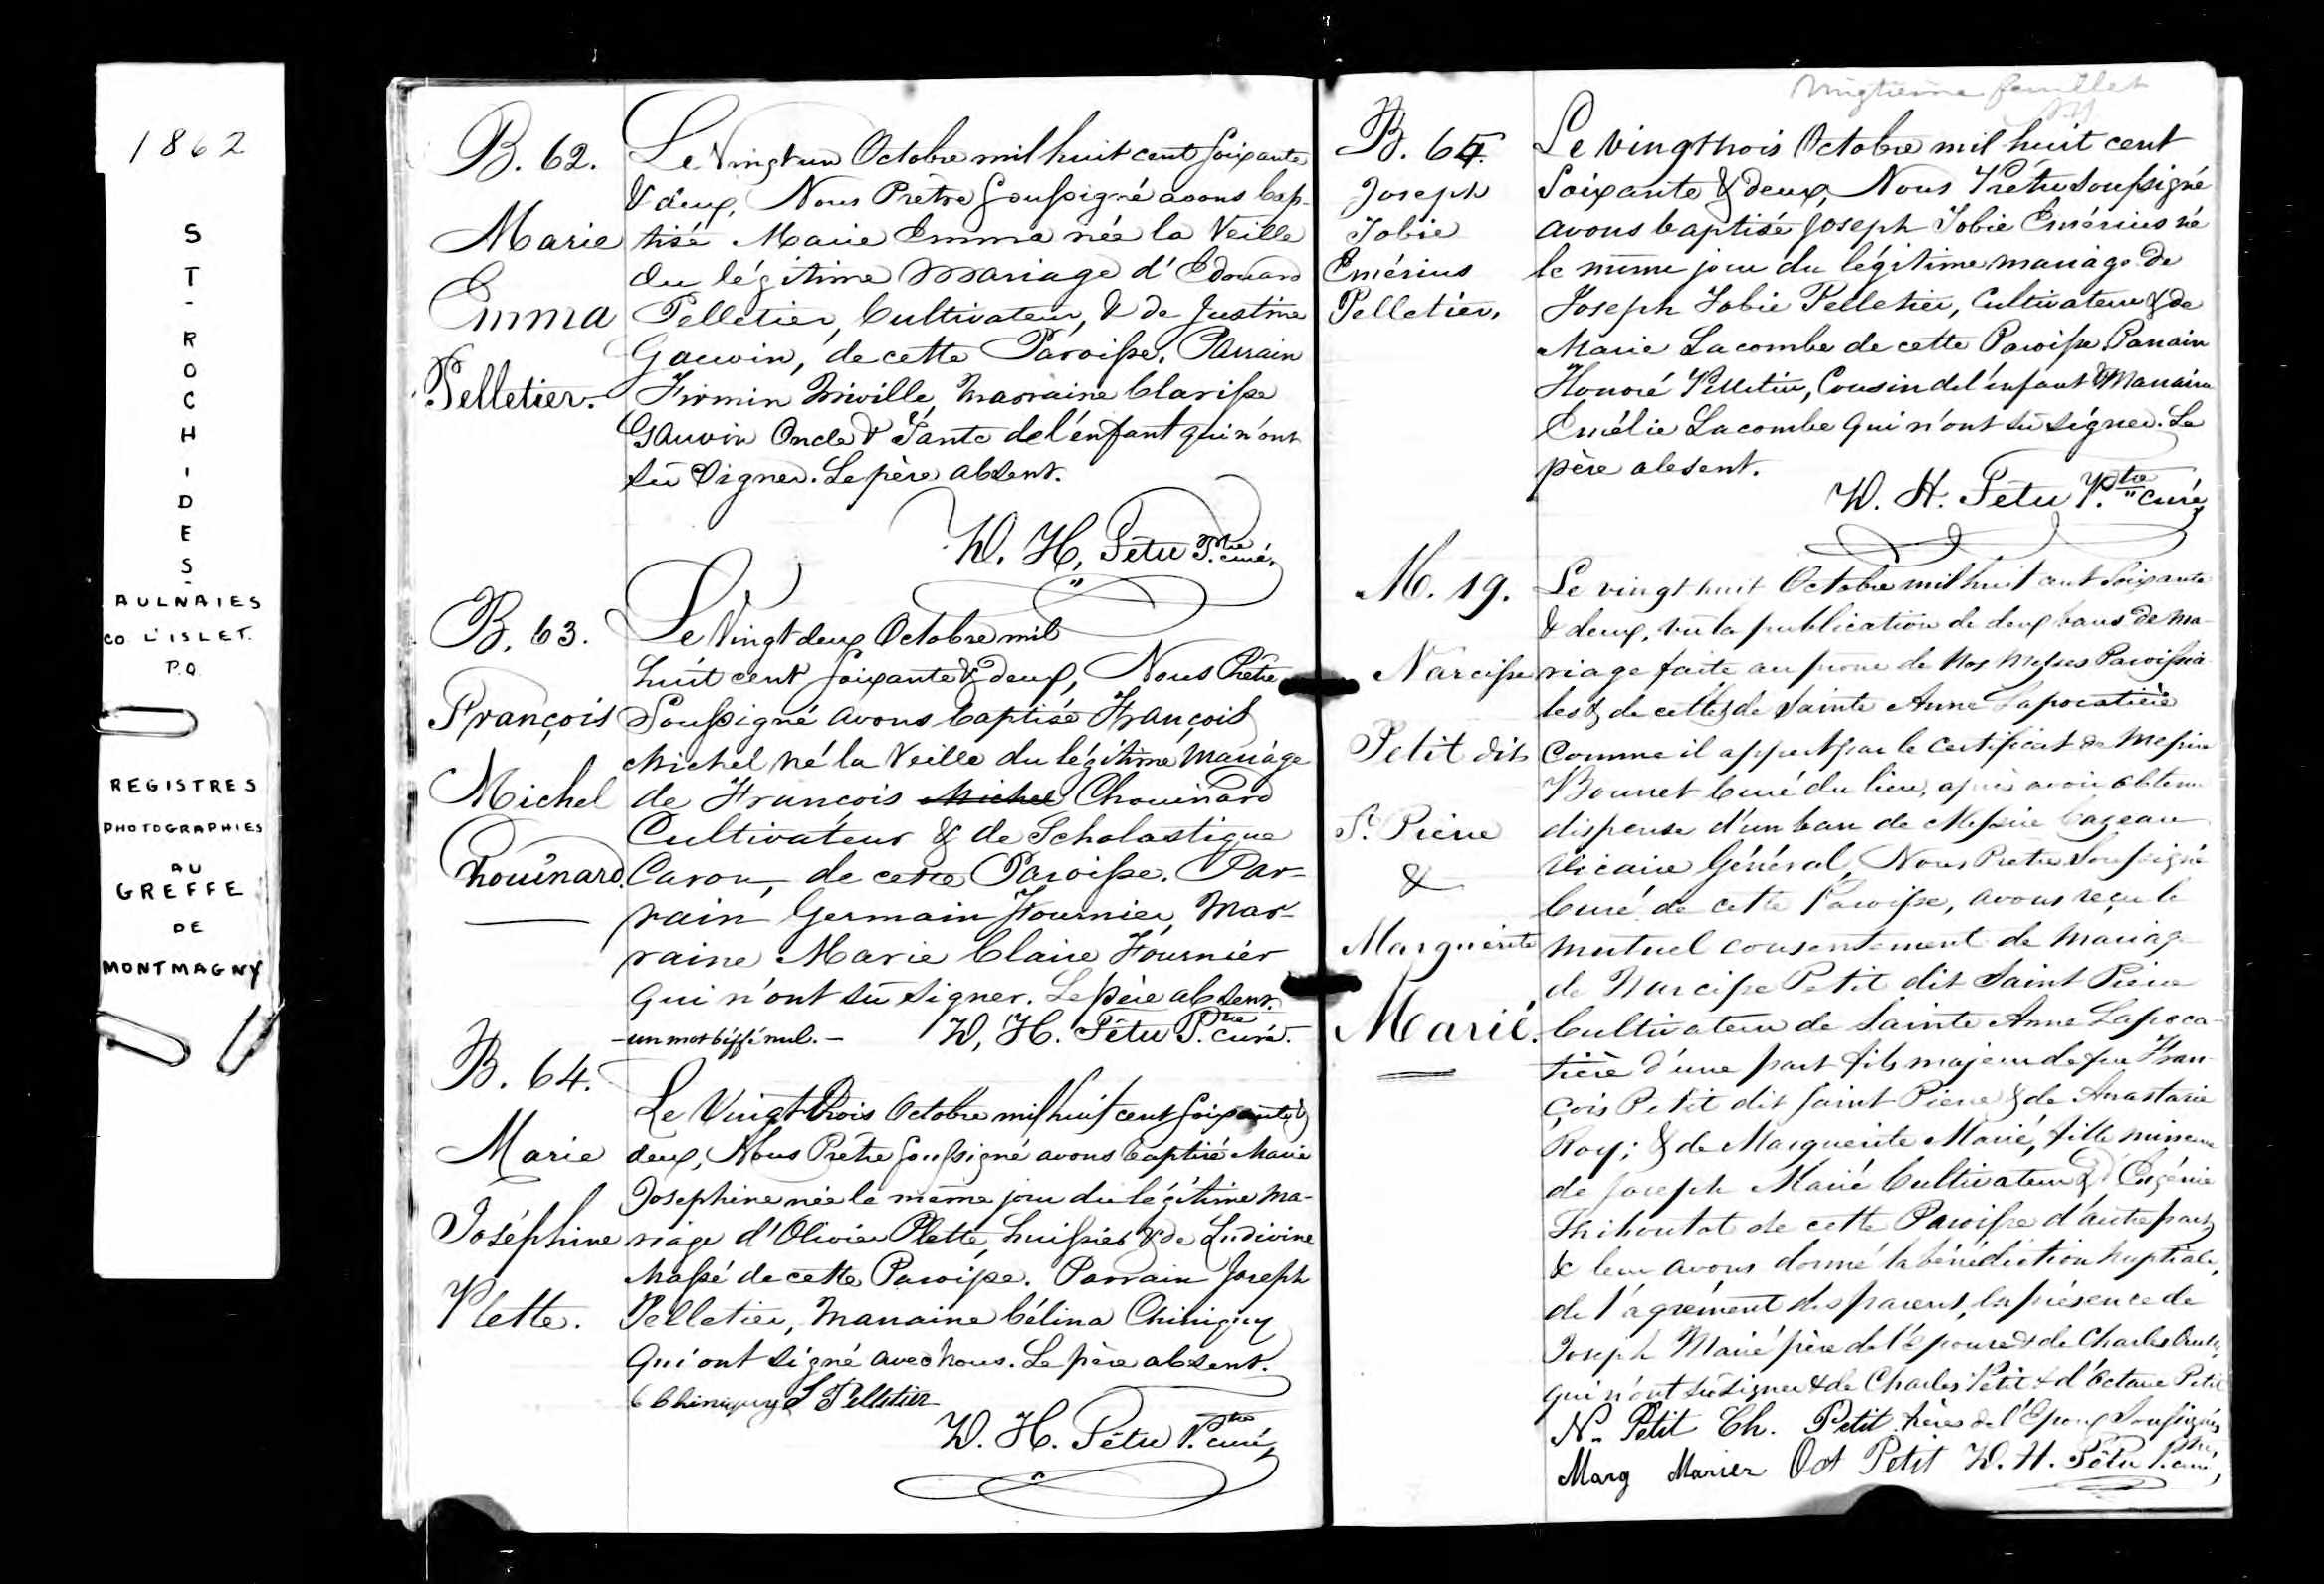 1862
ST-ROCH-DES-
AULNAIES
CO L'ISLET.
P.Q.
REGISTRES
PHOTOGRAPHIES
AU
GREFFE
DE
MONTMAGNY
B. 62.
Marie
Emma
Pelletier.
Le Vingt un Octobre mil huit cent soixante
& deux, Nous Prêtre soussigné avons bap-
tisé Marie Emma née la Veille
du légitime mariage d'Edouard
Pelletier, Cultivateur, & de Justine
Gauvin, de cette Paroisse. Parrain
Firmin Miville, Marraine Clarisse
Gauvin Oncle & Tante de l'enfant qui n'ont
sû signer. Le père absent.
W. H. Pêtu Ptre curé.
B. 63.
François
Michel
Chouinard.
Le Vingt deux Octobre mil
huit cent soixante & deux, Nous Prêtre
Soussigné avons baptisé François
Michel né la Veille du légitime Mariage
de François Michel Chouinard
Cultivateur & de Scholastique
Caron, de cette Paroisse. Par-
rain Germain Fournier, Mar-
raine Marie Claire Fournier
qui n'ont sû signer. Le père absent.
- un mot biffé nul. - W. H. Pêtu Ptre curé.
B. 64.
Marie
Joséphine
Plette.
Le Vingt trois Octobre mil huit cent soixante &
deux, Nous Prêtre soussigné avons baptisé Marie
Josephine née le même jour du légitime ma-
riage d'Olivier Plette, huissier & de Ludivine
Massé de cette Paroisse. Parrain Joseph
Pelletier, Marraine Célina Chiniquy
qui ont signé avec nous. Le père absent.
C Chiniquy J Pelletier
W. H. Pêtu Ptre curé
Vingtième feuillet
B. 65.
Joseph
Tobie
Emérius
Pelletier.
Le vingt trois Octobre mil huit cent
Soixante & deux, Nous Prêtre soussigné
avons baptisé Joseph Tobie Emérius né
le même jour du légitime mariage de
Joseph Tobie Pelletier, Cultivateur & de
Marie Lacombe de cette Paroisse. Parrain
Honoré Pelletier, Cousin de l'enfant & Marraine
Emélie Lacombe qui n'ont sû signer. Le
père absent.
W. H. Pêtu Ptre curé
M. 19.
Narcisse
Petit dit
St Pierre
&
Marguerite
Marié.
Le vingt huit Octobre mil huit cent soixante
& deux, vu la publication de deux bans de ma-
riage faite au prone de nos Messes Paroissia-
les & de celles de Sainte Anne Lapocatière
comme il appert par le certificat de Messire
Bourret Curé du lieu, après avoir obtenu
dispense d'un ban de Messire Cazeau
Vicaire Général, Nous Prêtre soussigné
Curé de cette Paroisse, avons reçu le
mutuel consentement de mariage
de Narcisse Petit dit Saint Pierre
Cultivateur de Sainte Anne Lapoca-
tière d'une part fils majeur de feu Fran-
çois Petit dit Saint Pierre & de Anastasie
Roy; & de Marguerite Marié, fille mineure
de Joseph Marié Cultivateur & d'Eugénie
Thiboutot de cette Paroisse d'autre part
& leur avons donné la bénédiction nuptiale,
de l'agrément des parents, en présence de
Joseph Marié père de l'épouse & de Charles
qui n'ont sû signer & de Charles Petit & d'Octave Petit
N. Petit Ch. Petit frères de l'Epoux soussignés
Marg Marier Oct Petit W. H. Pêtu Ptre curé,